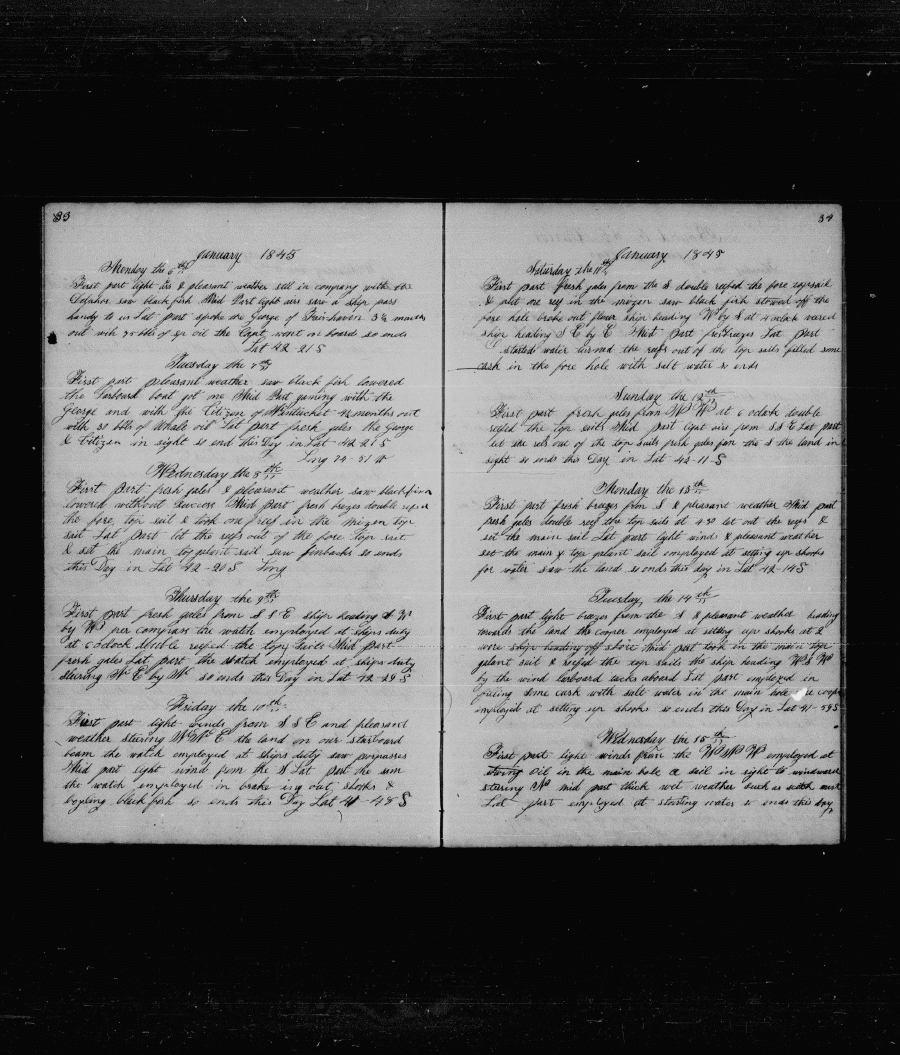 33
January 1845
Monday the 6th
First part light airs & pleasant weather still in company with the
Dolphin saw blackfish Mid Part light airs saw a ship pass
handy to us Lat part spoke the George of Fairhaven 3½ months
out with 30 bbls of oil the Capt went on board so ends
Lat 42-21 S
Tuesday the 7th
First part pleasant weather saw black fish lowered
the Larboard boat got one Mid Part gaming with the
George and with the Citizen of Nantucket 4 months out
with 30 bbls of Whale oil Lat part fresh gales the George
& Citizen in sight so end this Day in Lat 42 21 S
Long 74-51 W
Wednesday the 8th
First Part fresh gales & pleasant weather saw blackfish
lowered without Success Mid part fresh brezes double
the fore top sail & took one reef in the mizon top
sail Lat Part let the reefs out of the fore top sail
& set the main top galant sail saw finbacks so ends
this Day in Lat 42-20 S Long
Thursday the 9th
First part fresh gales from S S E ship heading
by W per compass the watch employed at ships duty
at 6 oclock double reefed the top sails Mid part
fresh gales Lat part the watch employed at ships duty
stering N E by N so ends this Day in Lat 42-29 S
Friday the 10th
First part light winds from S S E and pleasant
weather stering N N E the land on our starboard
beam the watch employed at ships duty saw porpusses
Mid part light wind from the S Lat part the same
the watch employed in brake ing out shooks &
boyling black fish so ends this Day Lat 41-48 S
34
January 1845
Saturday the 11th
First part fresh gales from the S double reefed the fore topsail
& put one reef in the mizon saw black fish stowed off the
fore hole broke out flour ship heading W by S at 4 oclock wared
ship heading S E by E Mid part brezes Lat part
started water turned the reefs out of the top sails filled some
cask in the fore hole with salt water so ends
Sunday the 12th
First part fresh gales from at 6 oclock double
reefed the top sails Mid part light airs from S S E Lat part
let the refs out of the top sails fresh gales from the S the land in
sight so ends this Day in Lat 42-11 S
Monday the 13th
First part fresh brezes from S & pleasant weather Mid part
fresh gales double reef the top sails at 4 30 let out the reefs &
set the main sail Lat part light winds & pleasant weather
set the main top galant sail employed at setting up shooks
for water saw the land so ends this day in Lat 42-14 S
Tuesday the 14th
First part light brezes from the S & pleasant weather heading
towards the land the cooper employed at setting up shooks at 2
wore ship heading off shore Mid part took in the main top
galant sail & reefed the top sails the ship heading W S W
by the wind larboard tacks aboard Lat part employed in
filling some cask with salt water in the main hole the cooper
employed at setting up shooks so ends this Day in Lat 41-59 S
Wednesday the 15th
First part light winds from the W S W employed at
stowing oil in the main hole a sail in sight to windward
stering N mid part thick wet weather such as
Lat part employed at starting water so ends this day